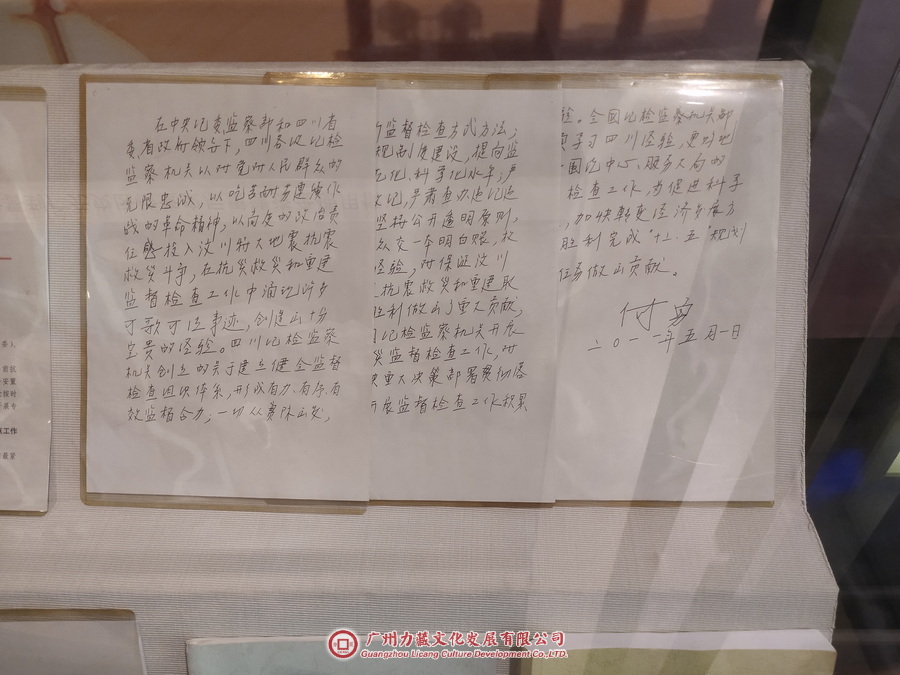 在中央纪委监察部和四川省
委、省政府领导下,四川各级纪检
监察机关以对党对人民群众的
无限忠诚,以吃苦耐劳连续作
战的革命精神,以高度的政治责
任感投入汶川特大地震抗震
救灾斗争,在抗震救灾和重建
监督检查工作中涌现许多
可歌可泣事迹,创造出十分
宝贵的经验。四川纪检监察
机关创立的关于建立健全监督
检查组织体系,形成有力、有序、有
效监督合力;一切从实际出发,
监督检查方式方法,
规制度建设,提高监
范化、科学化水平;严
纪,严肃查办违纪违
坚持公开透明原则,
众交一本明白账,
经验,对保证汶川
抗震救灾和重建取
胜利做出了重大贡献,
纪检监察机关开展
灾监督检查工作,对
央重大决策部署贯彻落
开展监督检查工作积累
验。全国纪检监察机关都
学习四川经验,更好地
围绕中心、服务大局的
检查工作,为促进科学
,加快转变经济发展方
胜利完成“十二·五”规划
任务做出贡献。
二〇一一年五月一日
委)、
安置
展专
工作
广州力藏文化发展有限公司
Guangzhou Licang Culture Development Co.,LTD.